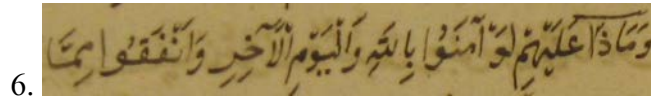 6. وَمَاذَا عَلَيْهِمْ لَوْ آمَنُوا بِاللَّهِ وَالْيَوْمِ الْآخِرِ وَأَنْفَقُوا مِمَّا